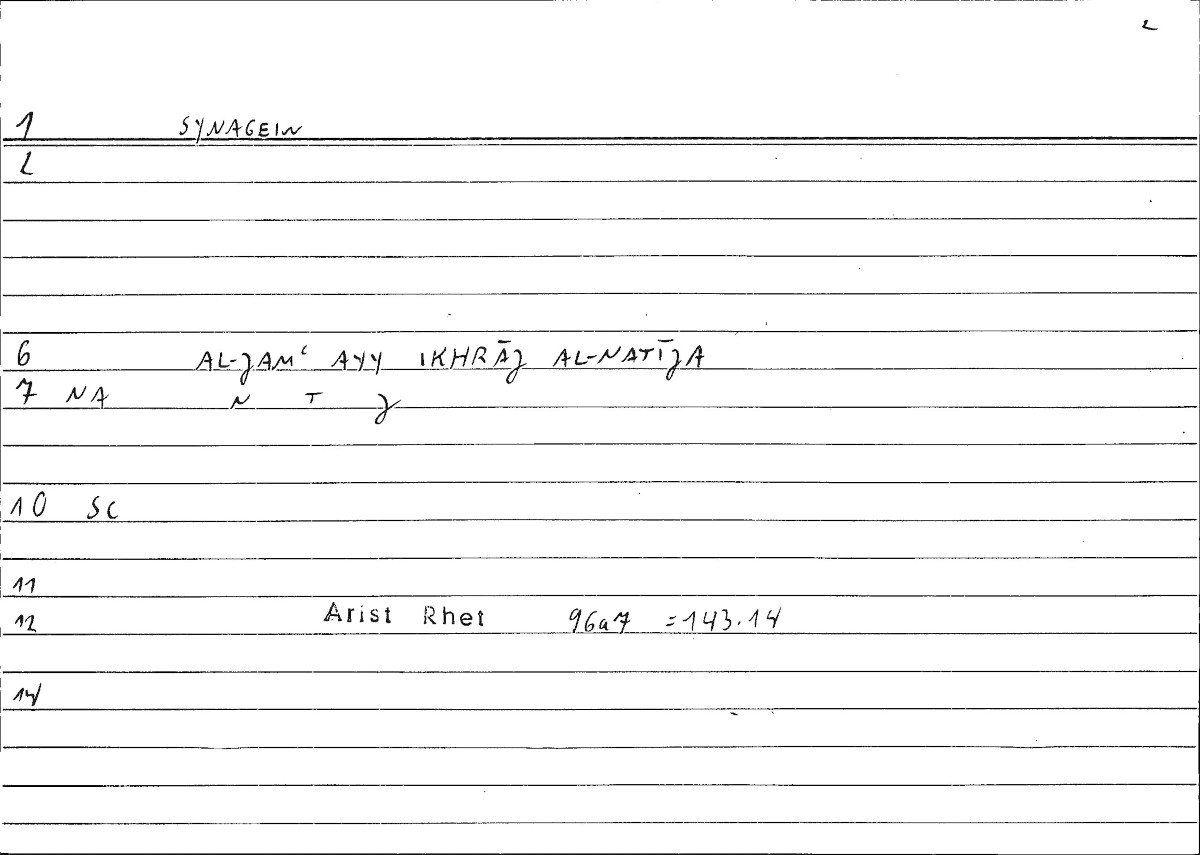 1 SYNAGEIN
2
6 AL-JAMʿ AYY IKHRĀJ AL-NATĪJA
7 NA N T J
10 SC
11
12 Arist Rhet 96a7 =143.14
14